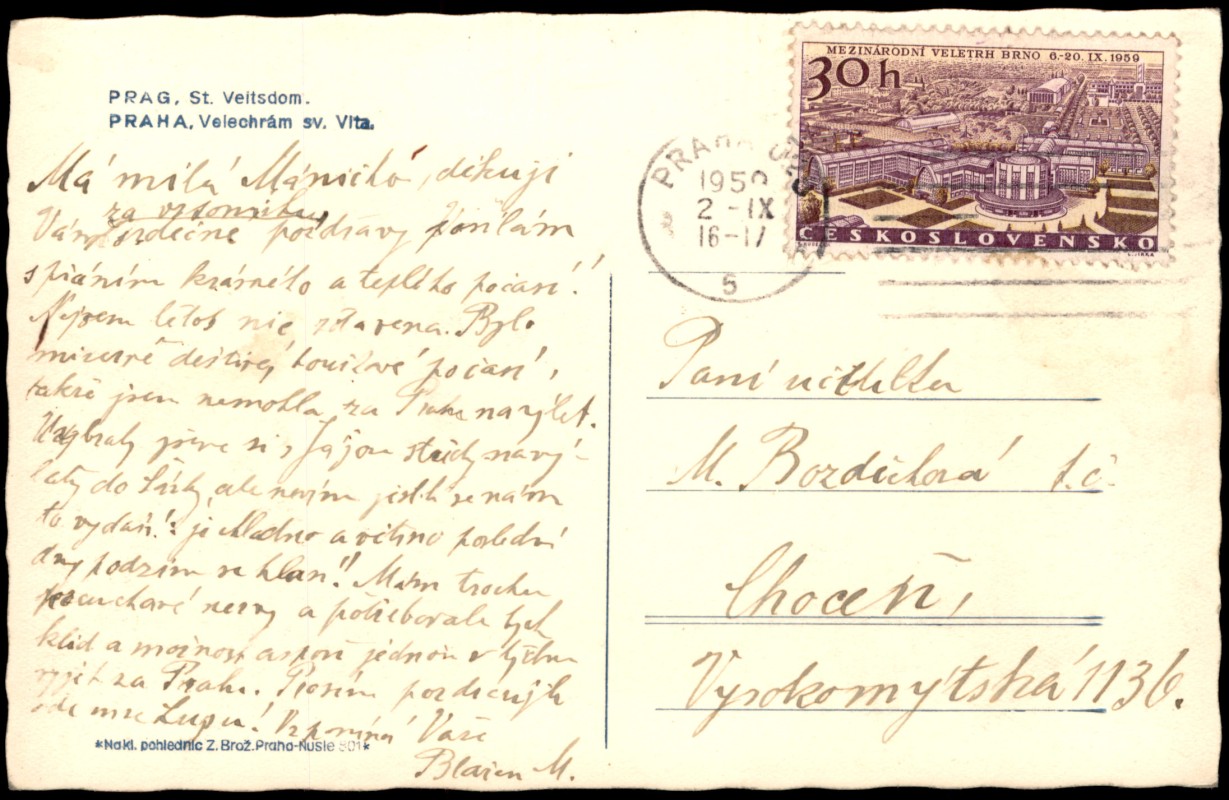 PRAG, St. Veitsdom.
PRAHA, Velechrám sv. Víta.
Má milá Máničko, děkuji
za vzpomínku,
Vám srdečné pozdravy posílám
s přáním krásného a teplého počasí!
Nejsem letos nic zotavena. Bylo
mizerné deštivé bouřkové počasí,
takže jsem nemohla za Prahu na výlet.
jsme si s Jájou na vý-
lety do Šárky, ale nevím jestli se nám
to vydaří! je chladno a větrno poslední
dny podzim se hlásí! Mám trochu
pocuchané nervy a potřebovala bych
klid a možnost aspoň jednou v týdnu
vyjít za Prahu. Prosím pozdravujte
ode mne! Vzpomíná Vaše
Blažen M.
*Nakl. pohlednic Z. Brož. Praha-Nusle 301*
MEZINÁRODNÍ VELETRH BRNO 6.-20. IX. 1959
30h
ČESKOSLOVENSKO
PRAHA
1959
2 -IX
16-17
5
Paní učitelka
M. Bozděchová t.č.
Choceň,
Vysokomýtská 1136.